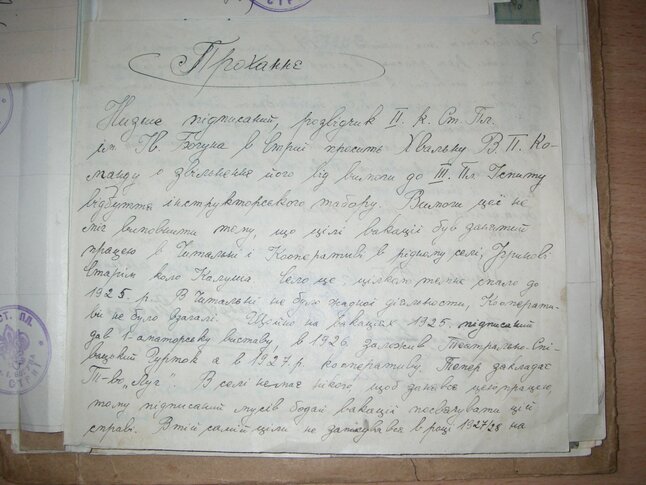 Проханнє
5
Низше підписаний, розвідчик II. к. Ст. Пл.
ім. Ів. Богуна в Стрию просить Хвальну В. П. Ко-
манду о звільнення його від вимоги до III. Пл. Іспиту
відбуття інструкторського табору. Вимоги цеї не
міг виповнити тому, що цілі вакації був занятий
працею в Читальні і Кооперативі в рідному селі,
Старім коло Калуша. Село це, цілком темне спало до
1925. р. В Читальні не було жадної діяльности, Кооперати-
ви не було взагалі. Щойно на вакаціях 1925. підписаний
дав 1. аматорську виставу, в 1926. заложив Театрально-Спі-
вацький Гурток а в 1927. р. кооперативу. Тепер закладає
Т-во „Луг". В селі немає нікого щоб занявся цею працею,
тому підписаний мусів бодай вакації посвячувати цій
справі. В тій самій ціли не записувався в році 1927/28 на
СТ. ПЛ.